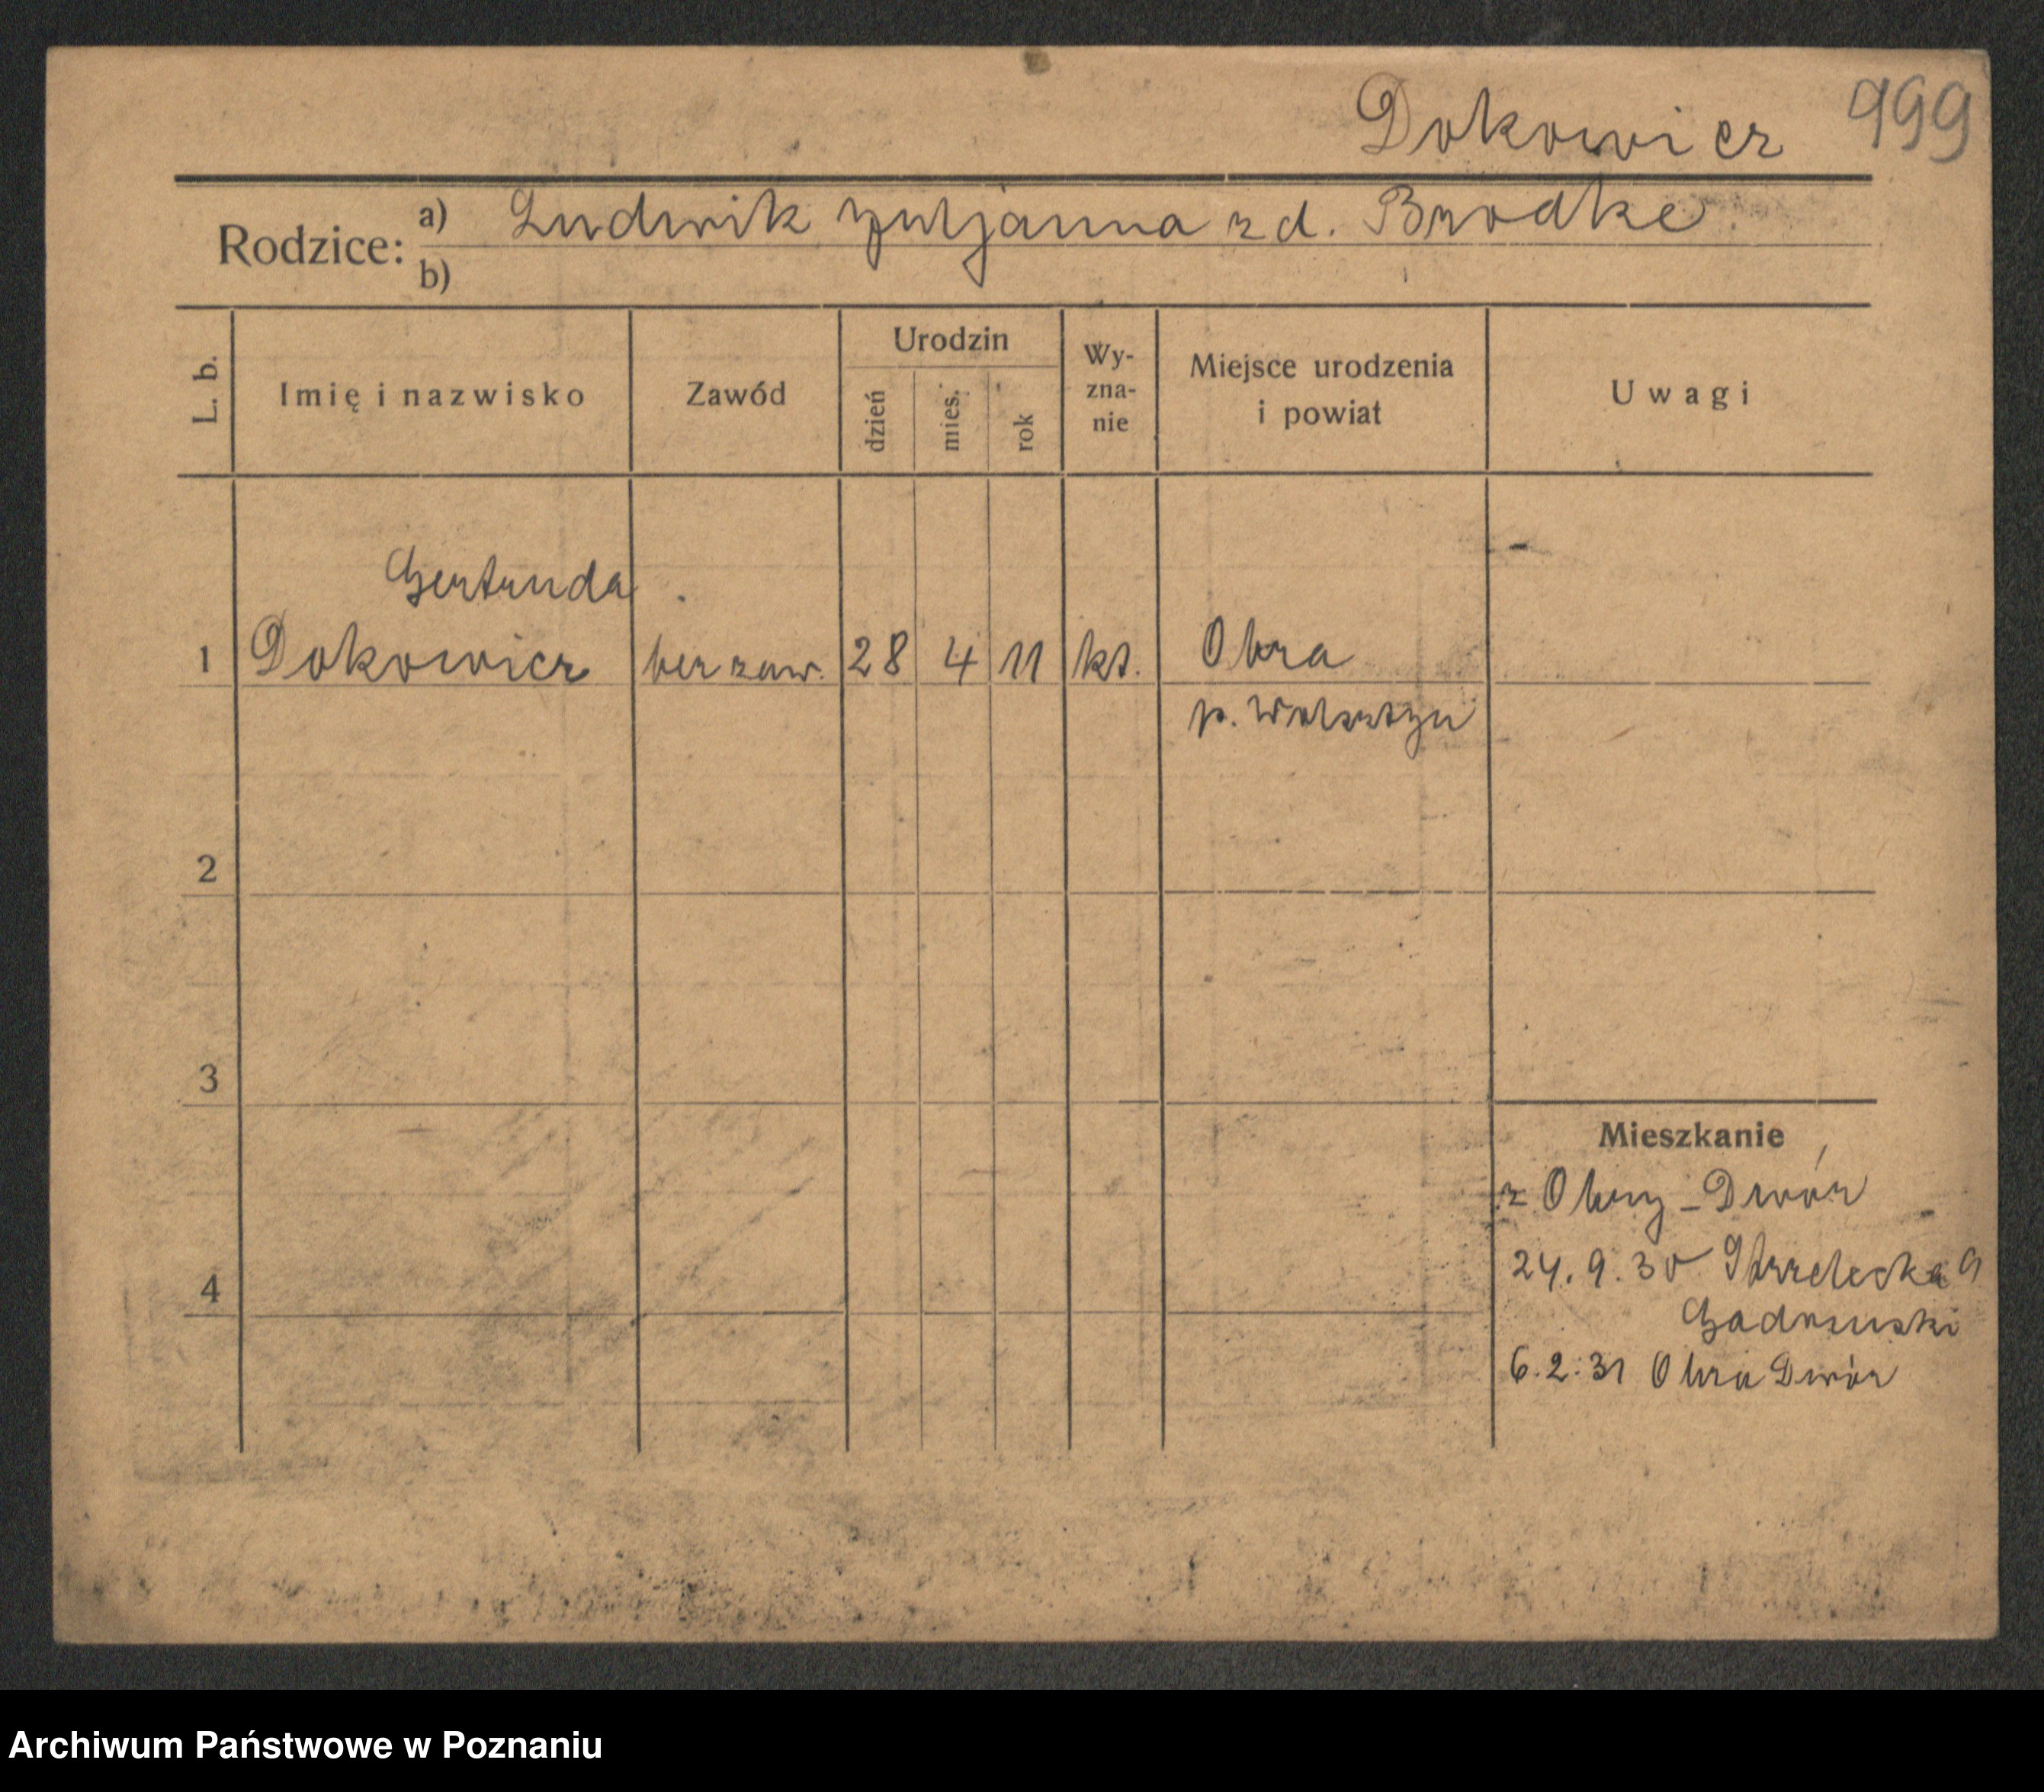 Dokowicz 999
Rodzice: a) Ludwik Juljanna z d. Brodke
b)
L. b. Imię i nazwisko Zawód Urodzin dzień mies. rok Wy-zna-nie Miejsce urodzenia i powiat Uwagi
Gertruda
1 Dokowicz bez zaw. 28 4 11 kt. Obra
p. Wolsztyn
2
3
Mieszkanie
z Obry - Dwór
24. 9. 30 Strzelecka 9
4
6. 2. 31 Obra Dwór
Archiwum Państwowe w Poznaniu